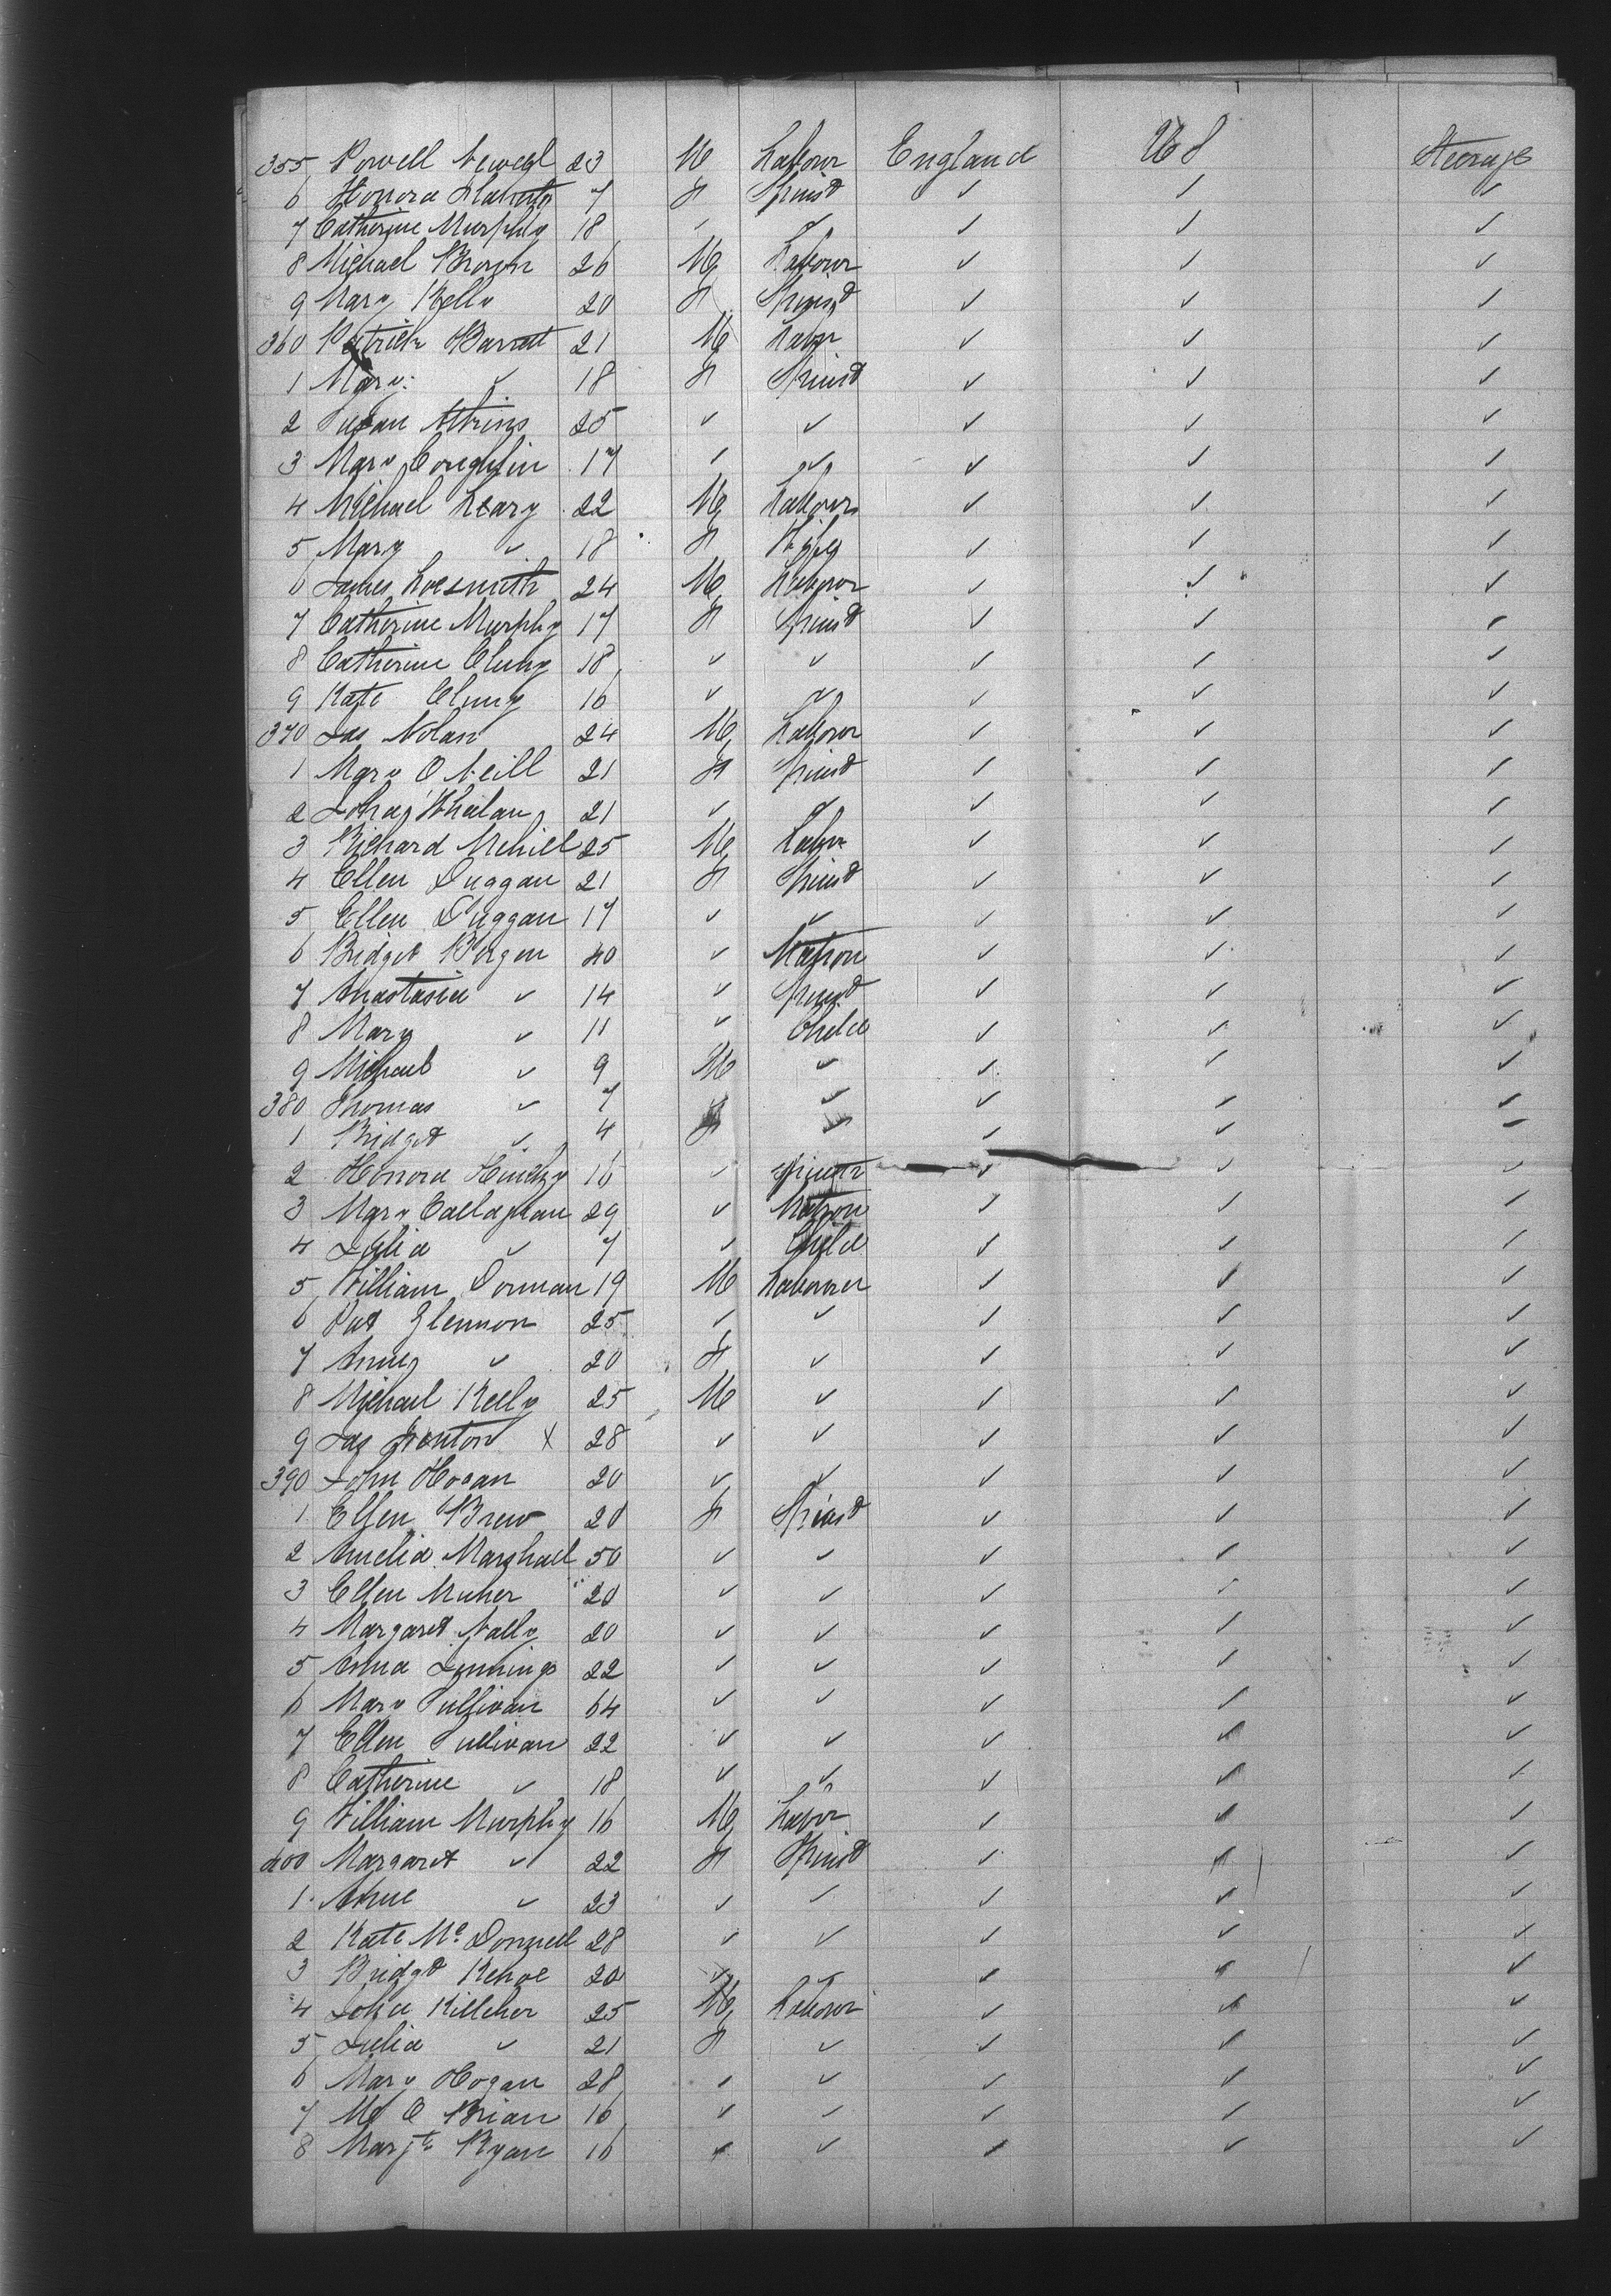 355 Powell Newell 23 M Labour England U S Steerage
6 Honora 7 F Spinst ✓ ✓ ✓
7 Catherine Murphy 18 ✓ ✓ ✓ ✓ ✓
8 Michael Brown 26 M Labour ✓ ✓ ✓
9 Mary Kelly 20 F Spinst ✓ ✓ ✓
360 Patrick Barrett 21 M Labor ✓ ✓ ✓
1 Mary ✓ 18 F Spinst ✓ ✓ ✓
2 Susan Atkins 25 ✓ ✓ ✓ ✓ ✓
3 Mary Coughlin 17 ✓ ✓ ✓ ✓ ✓
4 Michael Leary 22 M Labour ✓ ✓ ✓
5 Mary ✓ 18 F Wife ✓ ✓ ✓
6 James Loesmith 24 M Labour ✓ ✓ ✓
7 Catherine Murphy 17 F Spinst ✓ ✓ ✓
8 Catherine Cluny 18 ✓ ✓ ✓ ✓ ✓
9 Kate Cluny 16 ✓ ✓ ✓ ✓ ✓
370 Jas Nolan 24 M Labour ✓ ✓ ✓
1 Mary O Neill 21 F Spinst ✓ ✓ ✓
2 Whelan 21 ✓ ✓ ✓ ✓ ✓
3 Richard 25 M Labor ✓ ✓ ✓
4 Ellen Duggan 21 F Spinst ✓ ✓ ✓
5 Ellen Duggan 17 ✓ ✓ ✓ ✓ ✓
6 Bridget Bergen 40 ✓ Matron ✓ ✓ ✓
7 Anastasia ✓ 14 ✓ Spinst ✓ ✓ ✓
8 Mary ✓ 11 ✓ Child ✓ ✓ ✓
9 Michael ✓ 9 M ✓ ✓ ✓ ✓
380 Thomas ✓ 7 ✓ ✓ ✓ ✓ ✓
1 Bridget ✓ 4 F ✓ ✓ ✓ ✓
2 Honora 16 ✓ Spinstr ✓ ✓ ✓
3 Mary Callaghan 29 ✓ Matron ✓ ✓ ✓
4 Julia ✓ 7 ✓ Child ✓ ✓ ✓
5 William Dorman 19 M Labourer ✓ ✓ ✓
6 Pat Glennon 25 ✓ ✓ ✓ ✓ ✓
7 Anne ✓ 20 F ✓ ✓ ✓ ✓
8 Michael Kelly 25 M ✓ ✓ ✓ ✓
9 Jas Fenton X 28 ✓ ✓ ✓ ✓ ✓
390 John Hogan 20 ✓ ✓ ✓ ✓ ✓
1 Ellen Brew 20 F Spinst ✓ ✓ ✓
2 Amelia Marshall 50 ✓ ✓ ✓ ✓ ✓
3 Ellen Maher 20 ✓ ✓ ✓ ✓ ✓
4 Margaret Nally 20 ✓ ✓ ✓ ✓ ✓
5 Anna Jennings 22 ✓ ✓ ✓ ✓ ✓
6 Mary Sullivan 64 ✓ ✓ ✓ ✓ ✓
7 Ellen Sullivan 22 ✓ ✓ ✓ ✓ ✓
8 Catherine ✓ 18 ✓ ✓ ✓ ✓ ✓
9 William Murphy 16 M Labor ✓ ✓ ✓
400 Margaret ✓ 22 F Spinst ✓ ✓ ✓
1 Anne ✓ 23 ✓ ✓ ✓ ✓ ✓
2 Kate Mc Donnell 28 ✓ ✓ ✓ ✓ ✓
3 Bridgt Kehoe 20 ✓ ✓ ✓ ✓ ✓
4 John Killeher 25 M Labour ✓ ✓ ✓
5 Julia ✓ 21 F ✓ ✓ ✓ ✓
6 Mary Hogan 28 ✓ ✓ ✓ ✓ ✓
7 O Brian 16 ✓ ✓ ✓ ✓ ✓
8 Margt Ryan 16 ✓ ✓ ✓ ✓ ✓